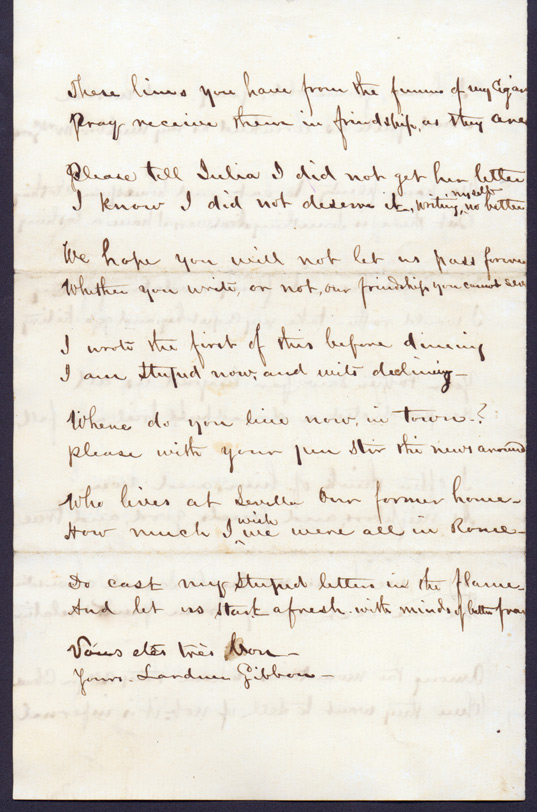 These lines you have from the fumes of my Cigar
Pray receive them in friendship, as they are
Please tell Julia I did not get her letter
I know I did not deserve it, writing myself no better
We hope you will not let us pass forever
Whether you write, or not, our friendships you cannot sever
I wrote the first of this before dining
I am stupid now and wits declining—
Where do you live now, in Town?
please with your pen stir the news around
Who lives at Sevilla Our former home—
How much I wish we were all in Rome—
Do cast my stupid letters in the flame—
And let us start afresh with minds of better fram
Vous etes très bon—
Yours. Lardner Gibbon—